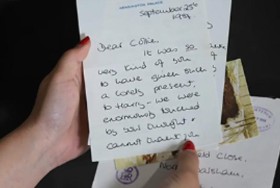 KENSINGTON PALACE
September 25th
Dear
It was so
very kind of you
to have given such
a lovely present
to Harry - we were
enormously touched
by said thought &
cannot thank you
Close.